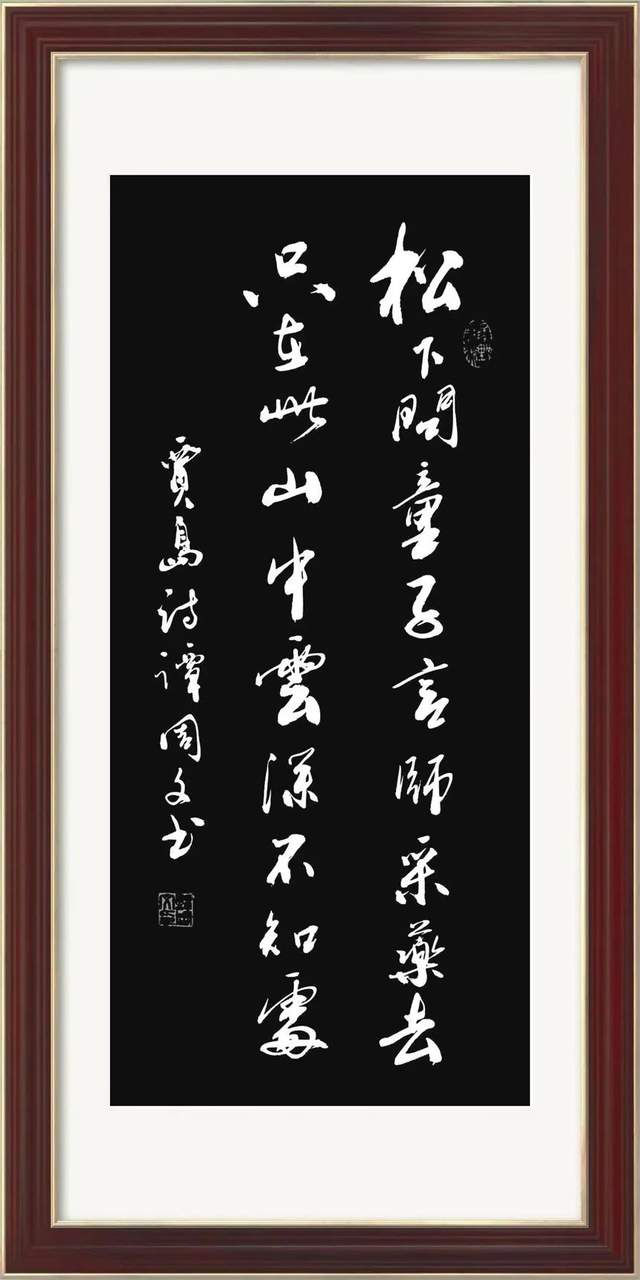 松下問童子言師采藥去
只在此山中雲深不知處
賈島詩譚周文书